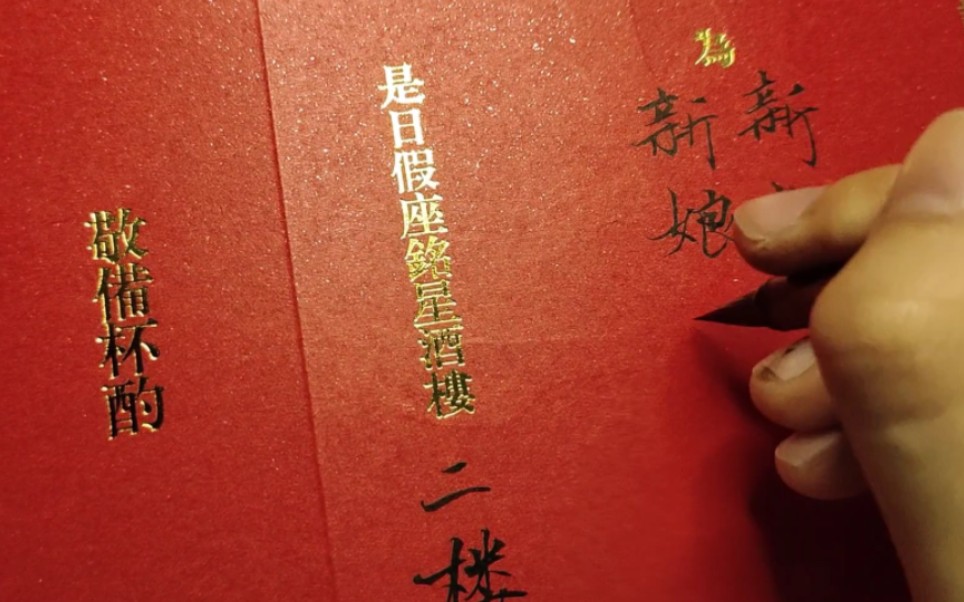 為
新
新娘
是日假座銘星酒樓二楼
敬備杯酌